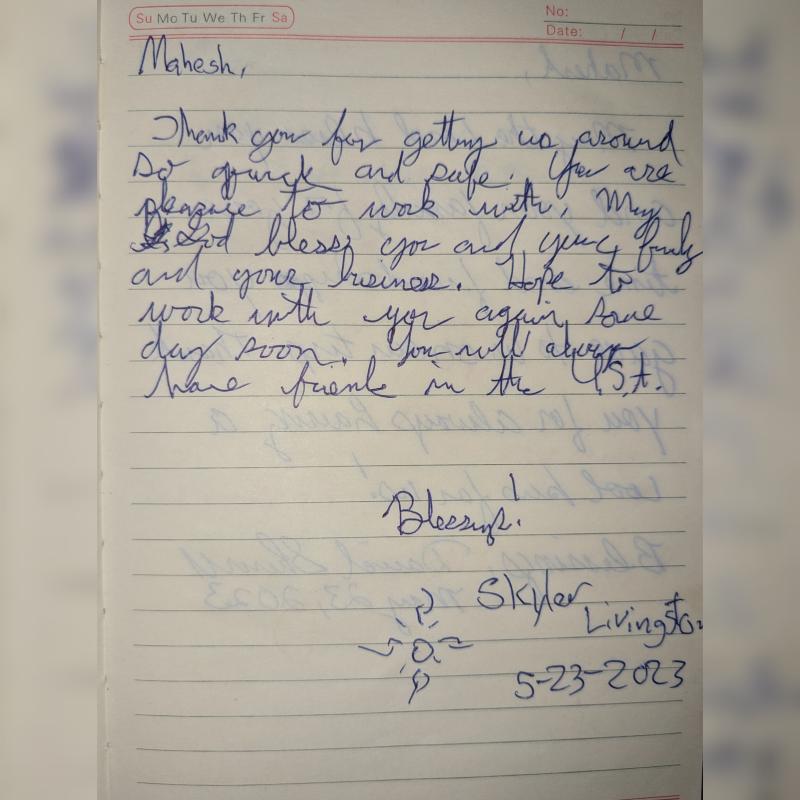 Su Mo Tu We Th Fr Sa
No:
Date: / /
Mahesh,
Thank you for getting us around
so quick and safe. You are
pleasure to work with. May
God bless you and your family
and your business. Hope to
work with you again some
day soon. You will always
have friends in the U.S.A.
Blessings!
Skyler
Livingston
5-23-2023
you for always having a
Blessings, David
May 23, 2023